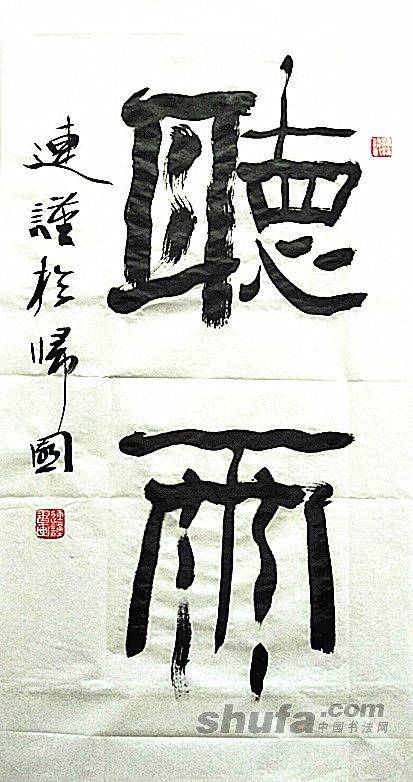 聽雨
連謹於歸園
shufa.com
中国书法网